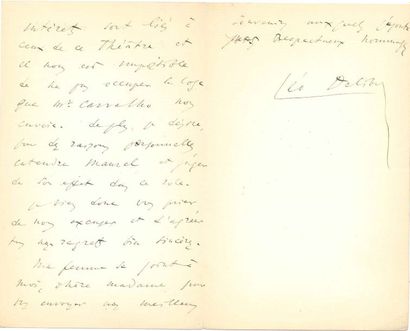 intérêts sont liés à
ceux de ce Théâtre et
il nous est impossible
de ne pas occuper la loge
que Mr Carvalho nous
envoie. De plus, je désire,
pour des raisons personnelles,
entendre Maurel et juger
de son effet dans ce rôle.
Je viens donc vous prier
de nous excuser et d'agréer
tous mes regrets bien sincères.
Ma femme se joint à
moi, chère madame, pour
vous envoyer nos meilleurs
souvenirs auxquels j'ajoute
mes respectueux hommages
Léo Delibes